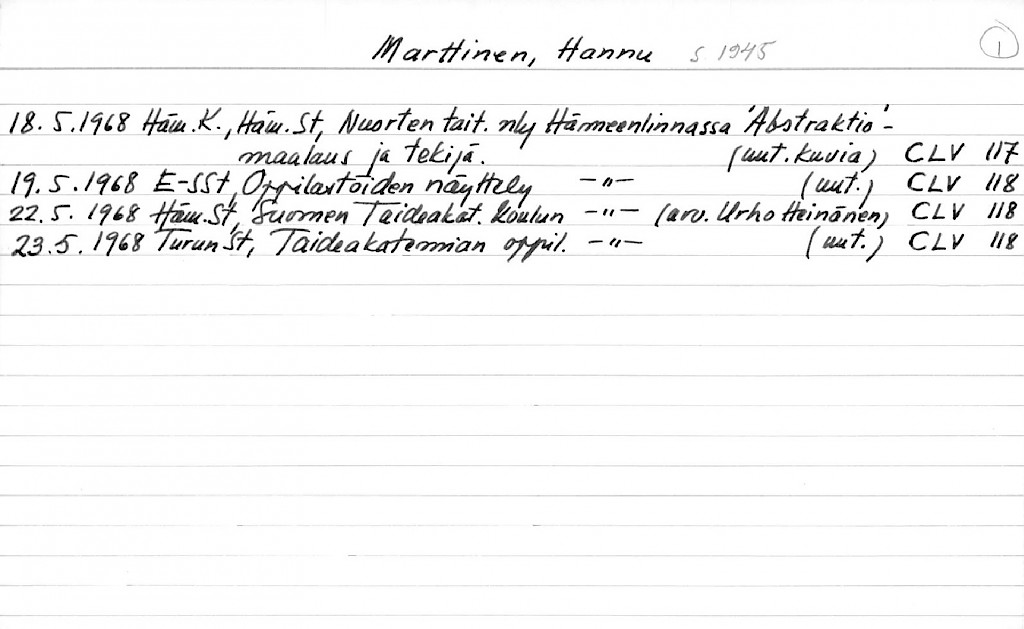 Marttinen, Hannu s. 1945 1
18.5.1968 Häm.K., Häm.St, Nuorten tait. nly Hämeenlinnassa 'Abstraktio'-
maalaus ja tekijä. (uut. kuvia) CLV 117
19.5.1968 E-SSt, Oppilastöiden näyttely -"- (uut.) CLV 118
22.5.1968 Häm.St, Suomen Taideakat. koulun -"- (arv. Urho Heinänen) CLV 118
23.5.1968 Turun St, Taideakatemian oppil. -"- (uut.) CLV 118